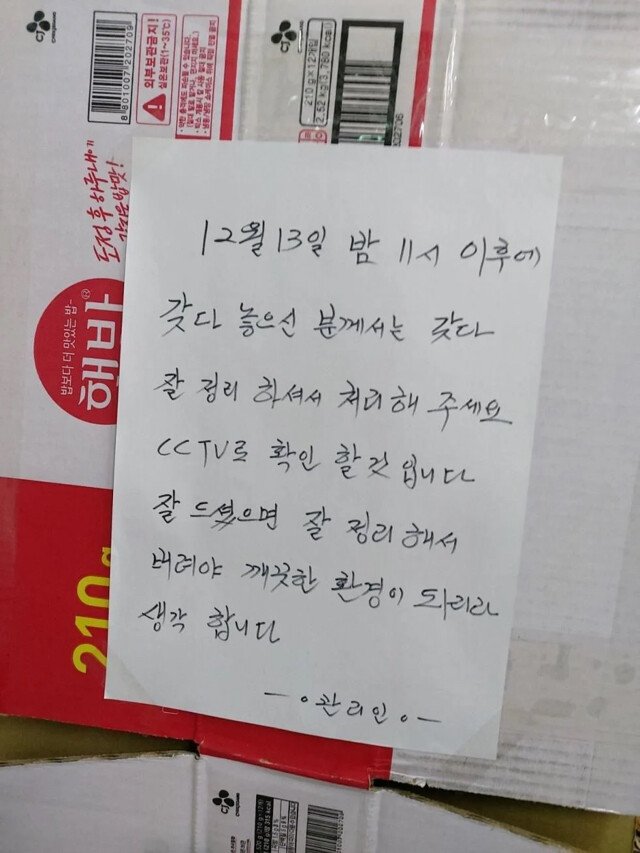 CJ
8801007202705
외부보관금지!
실온보관(1~35℃)
CJ
210 g×12개입
2.52 kg(3,780 kcal)
도정 후 하루내에
갓지은 밥맛!
밥보다 더 맛있는 밥
햇반
210g
12월 13일 밤 11시 이후에
갖다 놓으신 분께서는 갖다
잘 정리 하셔서 처리해 주세요
CCTV로 확인 할것 입니다
잘 드셨으면 잘 정리해서
버려야 깨끗한 환경이 되리라
생각 합니다
관리인
CJ